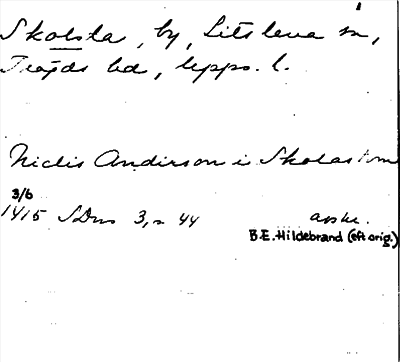 Skolsta, by, Litslena sn,
Trögds hd, Upps. l.
Niclis Anderson i Skolastom
3/6
1415 SDns 3, s 44 avskr.
B.E. Hildebrand (eft orig.)